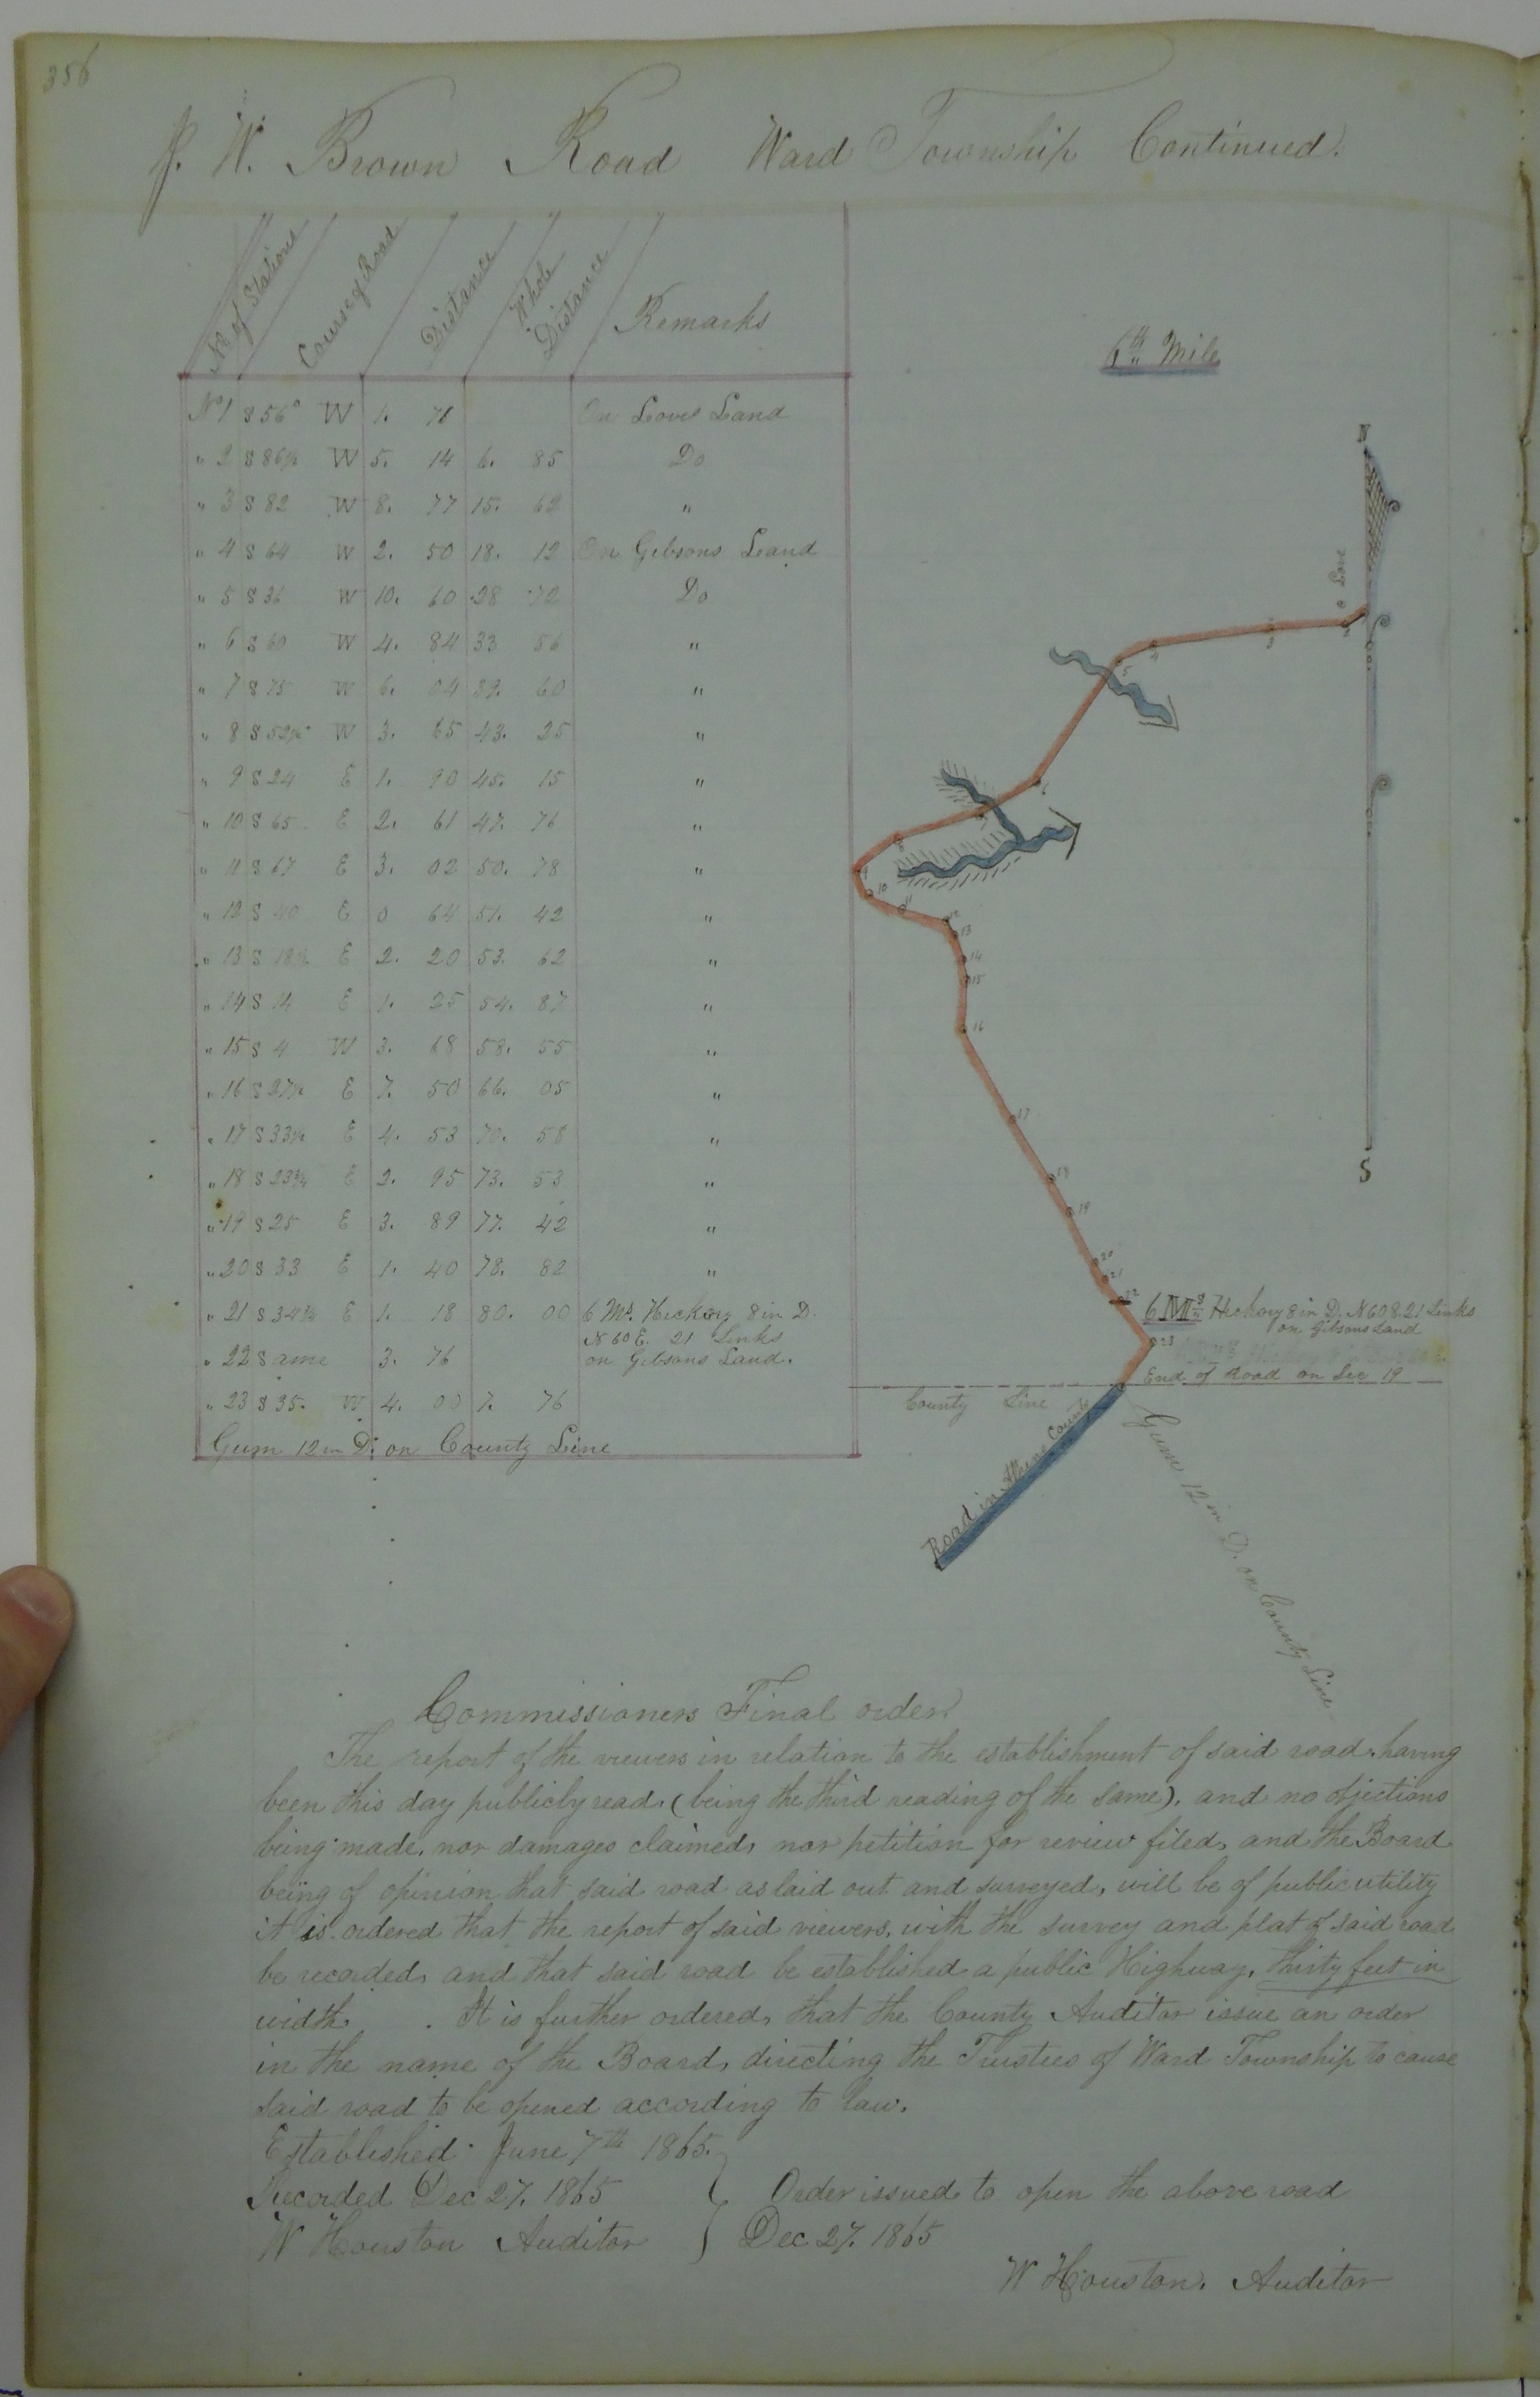 356
P. W. Brown Road Ward Township Continued.
No of Stations Course of Road Distance Whole Distance Remarks
No 1 S 56° W 1. 71 On Loves Land
" 2 S 86½ W 5. 14 6. 85 Do
" 3 S 82 W 8. 77 15. 62 "
" 4 S 64 W 2. 50 18. 12 On Gibsons Land
" 5 S 36 W 10. 60 28 72 Do
" 6 S 60 W 4. 84 33 56 "
" 7 S 75 W 6. 04 39. 60 "
" 8 S W 3. 65 43. 25 "
" 9 S 24 E 1. 90 45. 15 "
" 10 S 65 E 2. 61 47. 76 "
" 11 S 67 E 3. 02 50. 78 "
" 12 S 40 E 0 64 51. 42 "
" 13 S E 2. 20 53. 62 "
" 14 S 14 E 1. 25 54. 87 "
" 15 S 4 W 3. 68 58. 55 "
" 16 S E 7. 50 66. 05 "
" 17 S E 4. 53 70. 58 "
" 18 S 23¾ E 2. 95 73. 53 "
" 19 S 25 E 3. 89 77. 42 "
" 20 S 33 E 1. 40 78. 82 "
" 21 S E 1. 18 80. 00 6 Ms. Hickory 8 in D.
N 60 E. 21 Links
" 22 Same 3. 76 on Gibsons Land.
" 23 S 35. W 4. 00 7. 76
Gum 12 in D. on County Line
6th Mile
N
Love
2
3
4
5
6
7
8
9
10
11
12
13
14
15
16
17
18
19
20
21
22
23
S
6 Ms Hickory 8 in D. N 60 E. 21 Links
on Gibsons Land
End of Road on Sec 19
County Line
Road in Athens County
Gum 12 in D. on County Line
Commissioners Final order.
The report of the viewers in relation to the establishment of said road having
been this day publicly read, (being the third reading of the same). and no ofjections
being made, nor damages claimed, nor petition for review filed, and the Board
being of opinion that said road as laid out and surveyed, will be of public utility
it is ordered that the report of said viewers, with the survey and plat of said road
be recorded, and that said road be established a public Highway, thirty feet in
width. It is further ordered, that the County Auditor issue an order
in the name of the Board, directing the Trustees of Ward Township to cause
said road to be opened according to law.
Established June 7th 1865.
Recorded Dec 27. 1865
W Houston Auditor
Order issued to open the above road
Dec 27. 1865
W Houston. Auditor